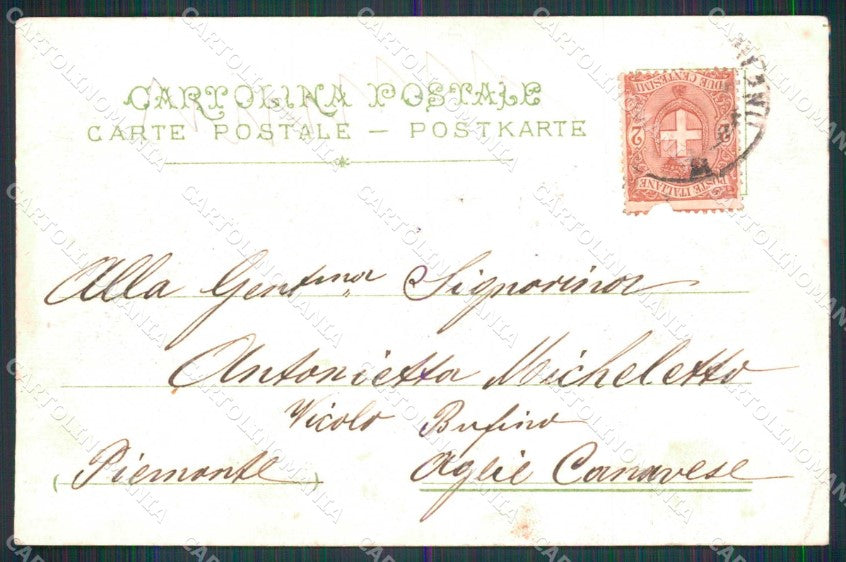 CARTOLINA POSTALE
CARTE POSTALE — POSTKARTE
DUE CENTESIMI
2
POSTE ITALIANE
Alla Gentma Signorina
Antonietta Micheletto
Vicolo Bufino
(Piemonte) Aglie Canavese
CARTOLINOMANIA